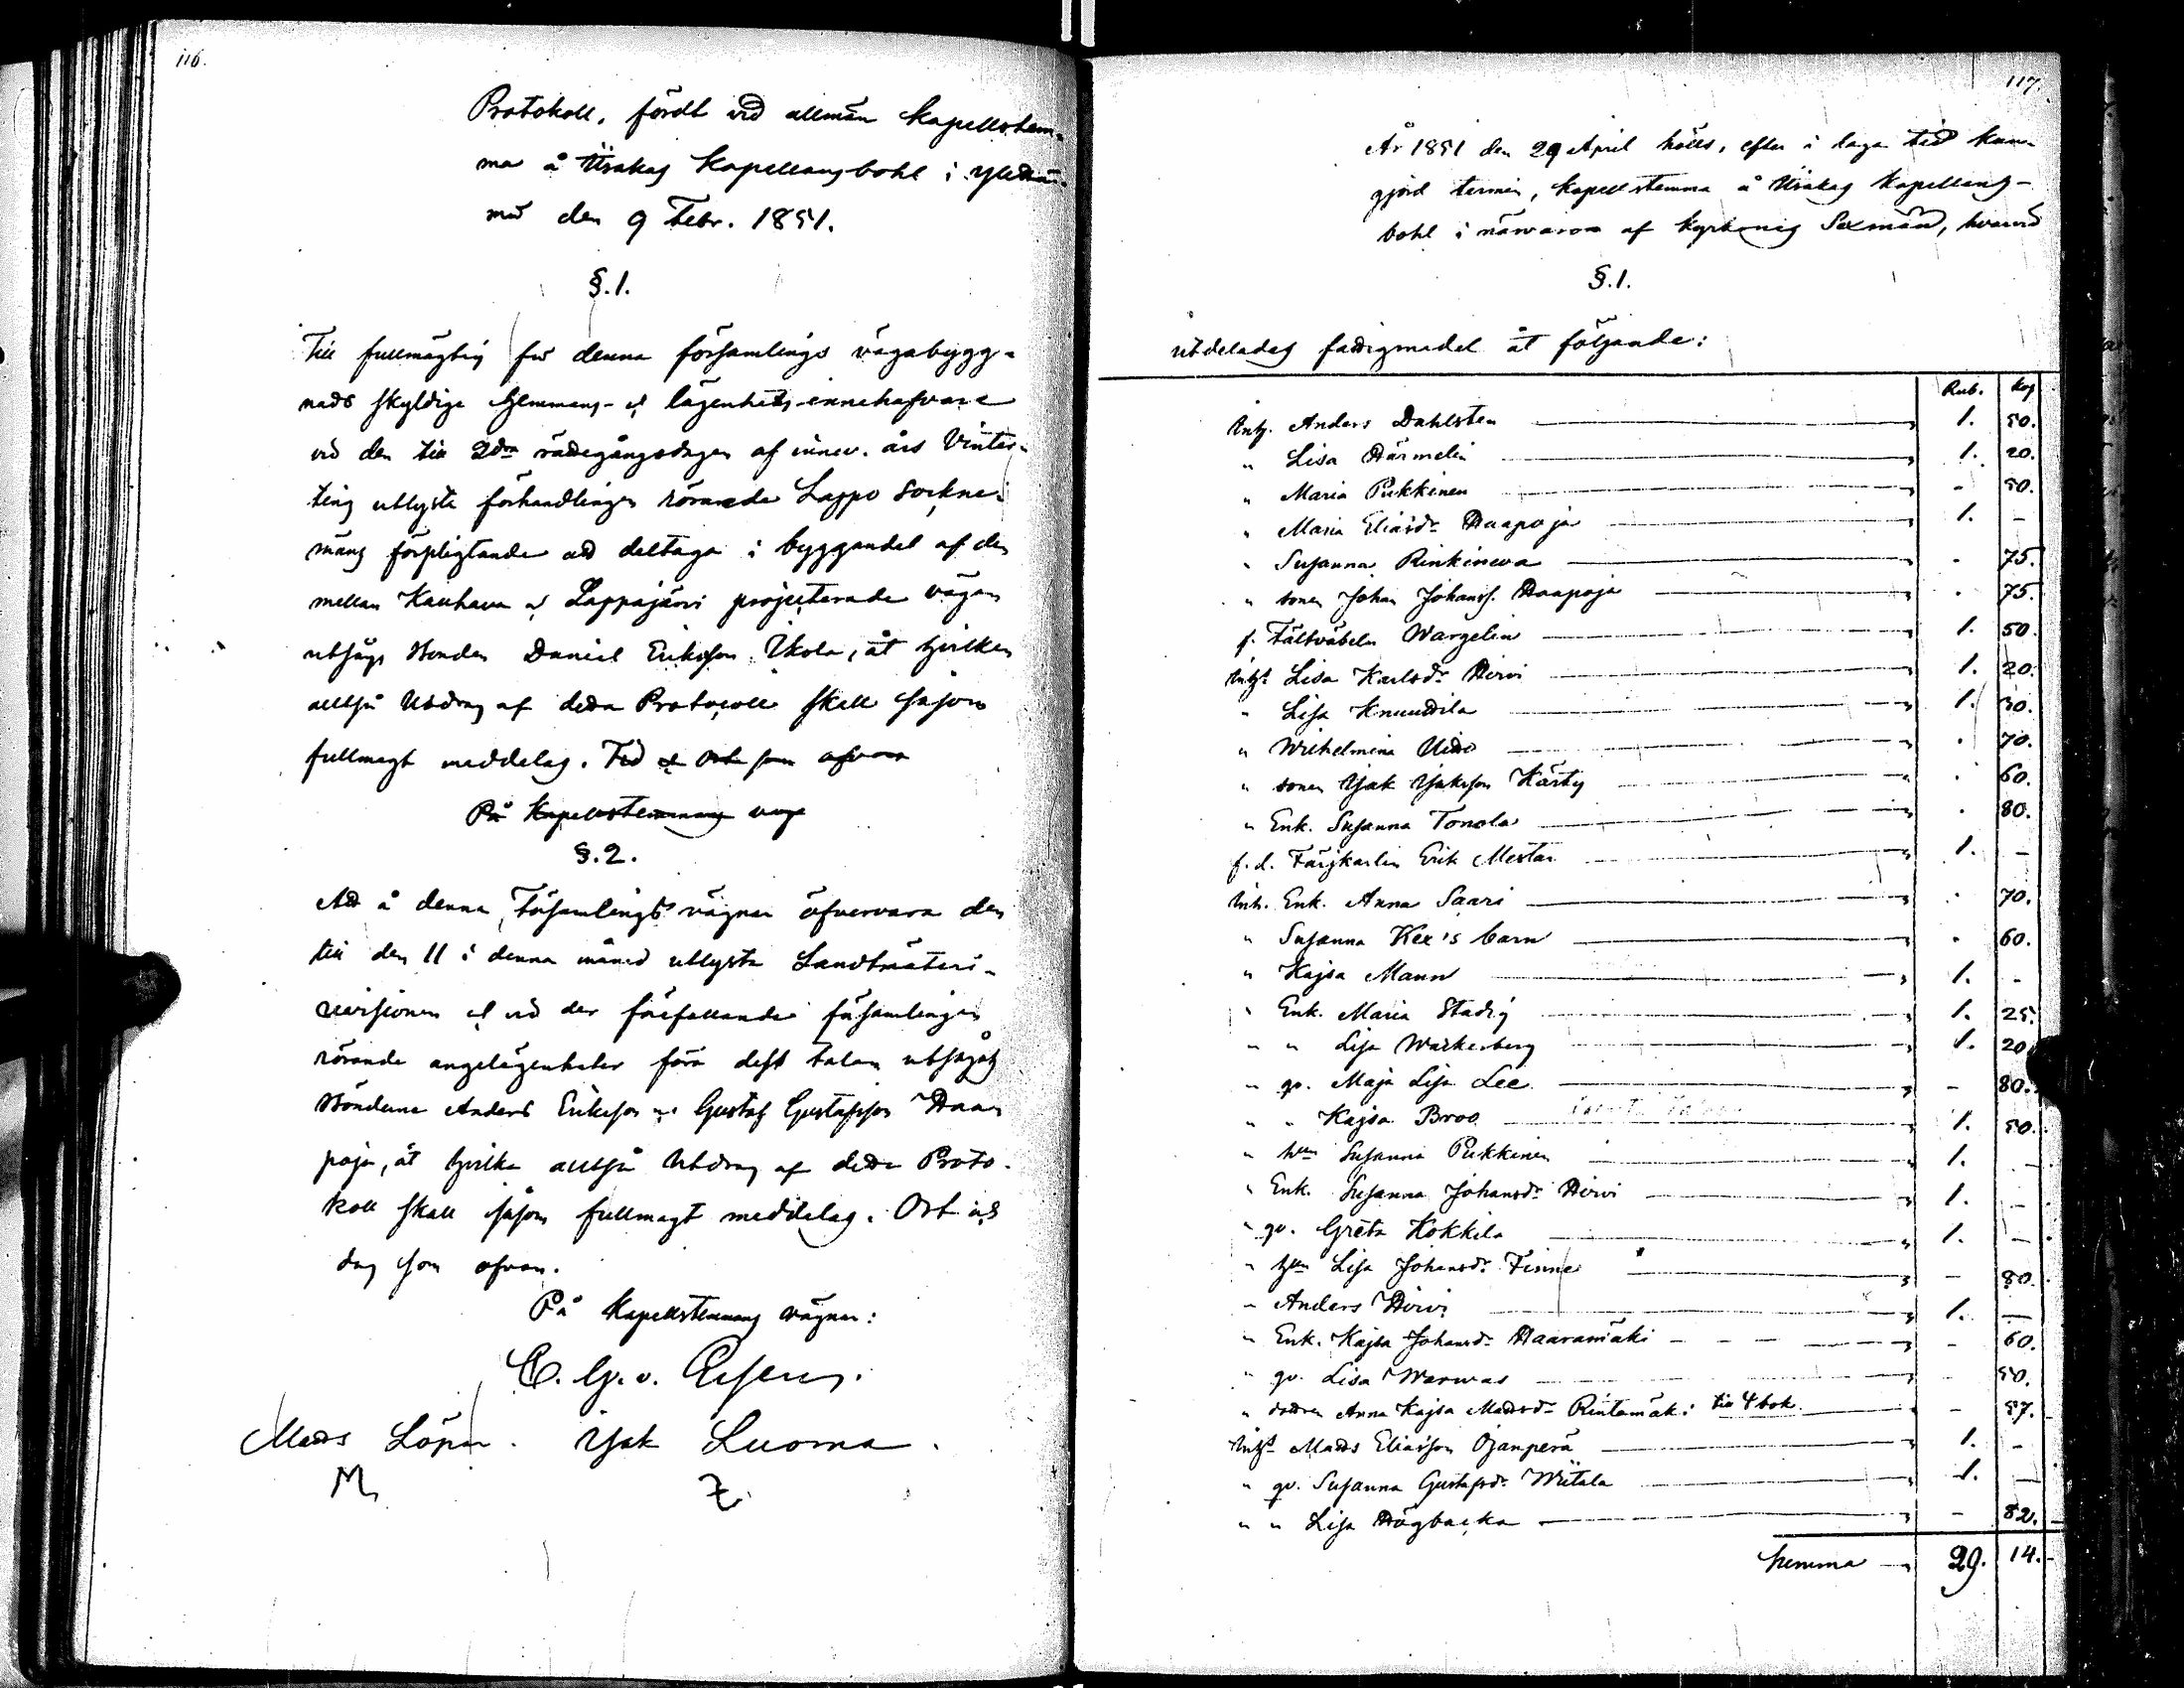 116.
Protokoll, fördt vid allmän Kapellstem-
ma å Ursakas Kapellansbohl i Ylihär-
mä den 9 Febr. 1851.
§.1.
Till fullmägtig för denna församlings vägabygg-
nads skyldige Hemmans- och lägenhets-innehafvare
vid den till 2dra rättegångsdagen af innev. års Vinter-
ting utlyste förhandlingen rörande Lappo Sockne-
mäns förpligtande att deltaga i byggandet af den
mellan Kauhava och Lappajärvi projecterade vägen
utsågs Bonden Daniel Eriksson Ikola, åt hvilken
alltså Utdrag af detta Protocoll skall såsom
fullmagt meddelas. Tid och Ort som ofvan
På Kapellstemmans vägn
§.2.
Att å denna Församlings vägnar öfvervara den
till den 11 i denna månad utlysta Landtmäteri-
revisionen och vid der förefallande församlingen
rörande angelägenheter föra dess talan utsågs
Bönderne Anders Eriksson och Gustaf Gustafsson Haa-
paja, åt hvilka alltså Utdrag af detta Proto-
koll skall såsom fullmagt meddelas. Ort och
dag som ofvan.
På Kapellstemmans vägnar:
C. G. v. Essen.
Matts Löpn. Isak Luoma.
M
117.
År 1851 den 29 April hölls, efter i laga tid kun-
gjord termin, Kapellstemma å Ursakas Kapellans-
bohl i närvaro af Kyrkones Sexmän, hvarvid
§.1.
utdelades fattigmedel åt följande:
Rub. Kop
Inh. Anders Dahlsten 1. 50.
" Lisa Härmelin 1. 20.
" Maria Pukkinen - 50.
" Maria Eliasdr Haapoja 1. -
" Susanna Rinkineva - 75.
" sonen Johan Johanss. Haapoja - 75.
f. Fältväbeln Wargelin 1. 50.
Inhs Lisa Karlsdr Hirvi 1. 20.
" Lisa Knuuttila 1. 30.
" Wilhelmina - 70.
" sonen Isak Isaksson Kärty - 60.
" Enk. Susanna Tonola - 80.
f.d. Färjkarlen Erik Mestar 1. -
Inh. Enk. Anna Saari - 70.
" Susanna Kex's barn - 60.
" Kajsa Mann 1. -
" Enk. Maria Stadig 1. 25.
" " Lisa Warkerberg 1. 20
" qv. Maja Lisa Lee - 80.
" " Kajsa Broo 1. 50.
" Susanna Pukkinen 1. -
" Enk. Susanna Johansdr Hirvi 1. -
" qv. Greta Kokkila 1. -
" Lisa Johansdr Finne - 80.
" Anders Hirvi 1. -
" Enk. Kajsa Johansdr Haaramäki - 60.
" qv. Lisa Warwas - 50.
" dottren Anna Kajsa Mattsdr Rintamäki till 4 bok - 57.
Inhs Matts Eliasson Ojanperä 1. -
" qv. Susanna Gustafsdr Wiitala 1. -
" " Lisa Högbacka - 82.
Summa 29. 14.